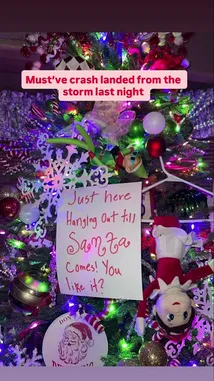 Must've crash landed from the
storm last night
Just here
Hanging Out till
Santa
Comes! You
like it?